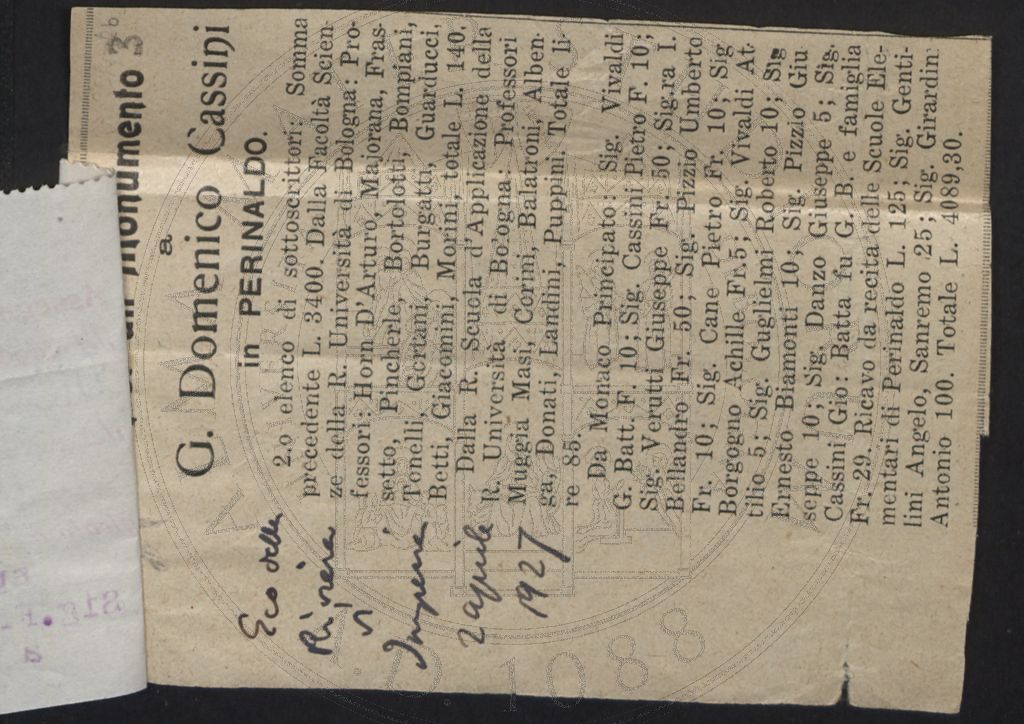 un monumento
3b
a
G. Domenico Cassini
in PERINALDO.
2.o elenco di sottoscrittori: Somma
precedente L. 3400. Dalla Facoltà Scien-
ze della R. Università di Bologna: Pro-
fessori: Horn D'Arturo, Majorana, Fras-
setto, Pincherle, Bortolotti, Bompiani,
Tonelli, Gortani, Burgatti, Guarducci,
Betti, Giacomini, Morini, totale L. 140.
Dalla R. Scuola d'Applicazione della
R. Università di Bologna: Professori
Muggia Masi, Corini, Balatroni, Alben-
ga, Donati, Landini, Puppini, Totale li-
re 85.
Da Monaco Principato: Sig. Vivaldi
G. Batt. F. 10; Sig. Cassini Pietro F. 10;
Sig. Verutti Giuseppe Fr. 50; Sig.ra I.
Bellandro Fr. 50; Sig. Pizzio Umberto
Fr. 10; Sig. Cane Pietro Fr. 10; Sig
Borgogno Achille Fr.5; Sig. Vivaldi At-
tilio 5; Sig. Guglielmi Roberto 10; Sig
Ernesto Biamonti 10; Sig Pizzio Giu
seppe 10; Sig. Danzo Giuseppe 5; Sig.
Cassini Gio: Batta fu G. B. e famiglia
Fr. 29. Ricavo da recita delle Scuole Ele-
mentari di Perinaldo L. 125; Sig. Genti-
lini Angelo, Sanremo 25; Sig. Girardin
Antonio 100. Totale L. 4089,30.
Eco della
Riviera
Imperia
2 aprile
1927
1088